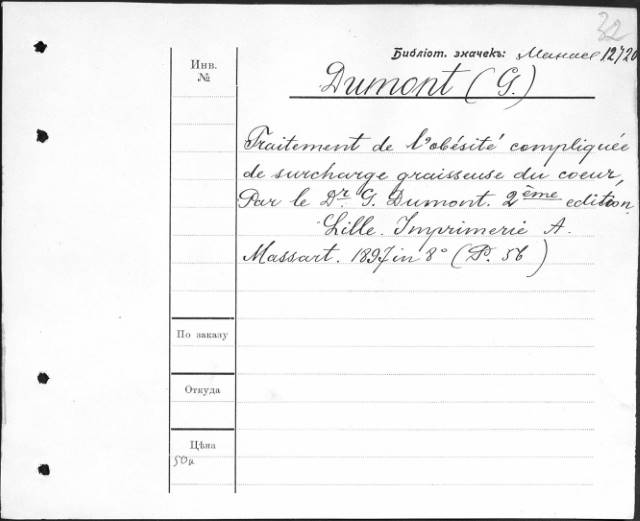 32
Библіот. значекъ: Манасе 12720
Инв.
№
Dumont (G.)
Traitement de l'obésité compliquée
de surcharge graisseuse du coeur,
Par le Dr. G. Dumont. 2ème edition.
Lille. Imprimerie A.
Massart. 1897 in 8° (P. 56)
По заказу
Откуда
Цѣна
50